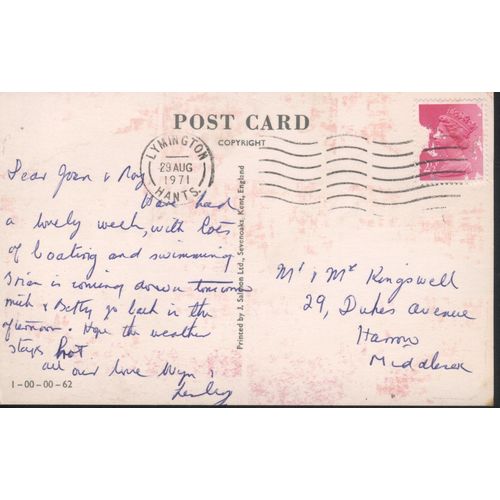 POST CARD
COPYRIGHT
LYMINGTON
HANTS.
29 AUG
1971
2½P
Dear Joan & Roy
Have had
a lovely week, with lots
of boating and swimming
Brian is coming down
& Betty go back in the
afternoon. Hope the weather
stays hot
all our love Wyn &
Lesley
1-00-00-62
Printed by J. Salmon Ltd., Sevenoaks, Kent, England
Mr & Mrs Kingswell
29, Dukes Avenue
Harrow
Middlesex